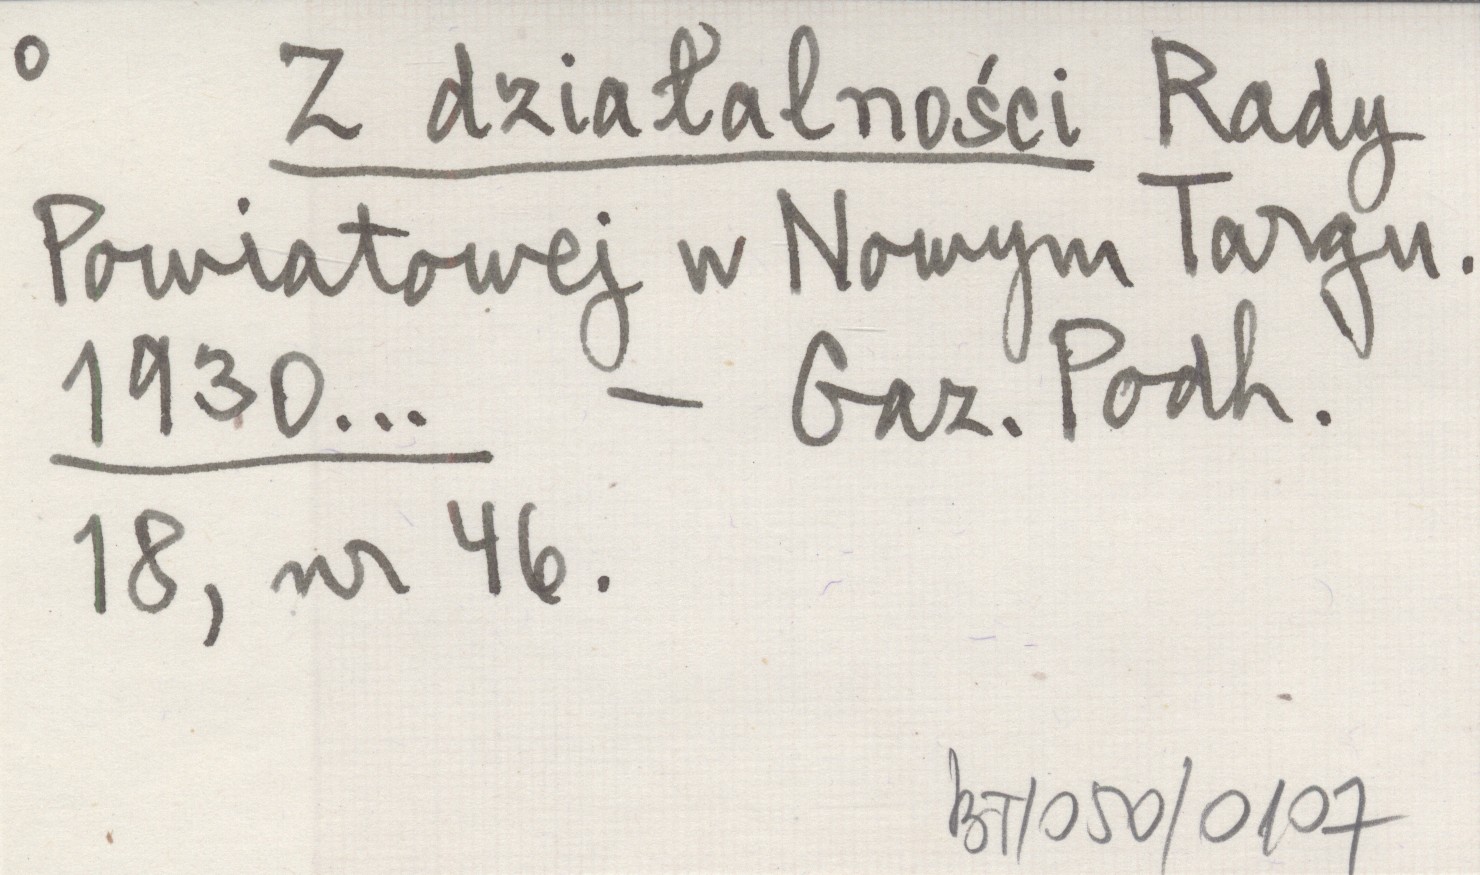 o Z działalności Rady
Powiatowej w Nowym Targu.
1930... – Gaz. Podh.
18, nr 46.
BT/050/0107